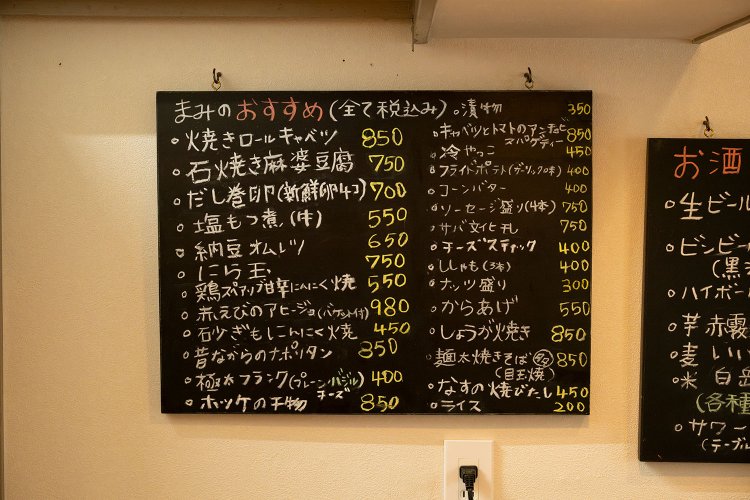 まみのおすすめ(全て税込み)
焼きロールキャベツ 850
石焼き麻婆豆腐 750
だし巻卵(新鮮卵4コ) 700
塩もつ煮(牛) 550
納豆オムレツ 650
にら玉 750
鶏スペアリブ甘辛にんにく焼 550
赤えびのアヒージョ(バケット付) 980
砂ぎもにんにく焼 450
昔ながらのナポリタン 850
極太フランク(プレーン・バジル・チーズ) 400
ホッケの干物 850
漬物 350
キャベツとトマトのアンチョビ
スパゲティー 850
冷やっこ 450
フライドポテト(ガーリックの味) 400
コーンバター 400
ソーセージ盛り(4本) 750
サバ文化干し 750
チーズスティック 400
ししゃも(3本) 400
ナッツ盛り 300
からあげ 550
しょうが焼き 850
麺太焼きそば 850
(目玉焼)
なすの焼びたし 450
ライス 200
お酒
生ビール
ビンビー
(黒
ハイボー
芋 赤霧
麦 いい
米 白岳
(各種
サワー
(テーブル